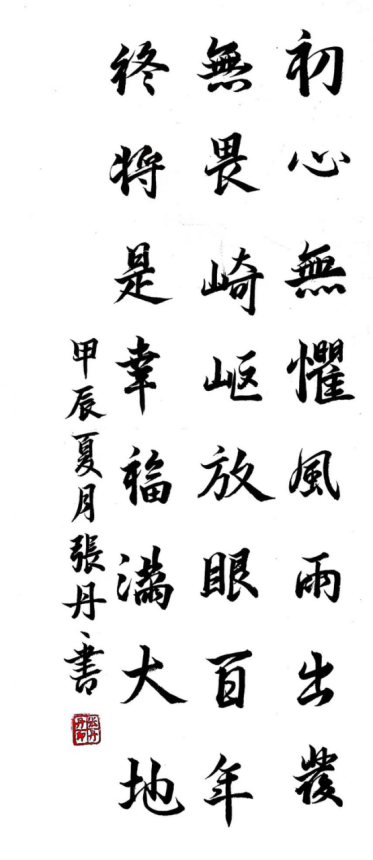 初心無懼風雨出發
無畏崎岖放眼百年
终将是幸福满大地
甲辰夏月張丹書